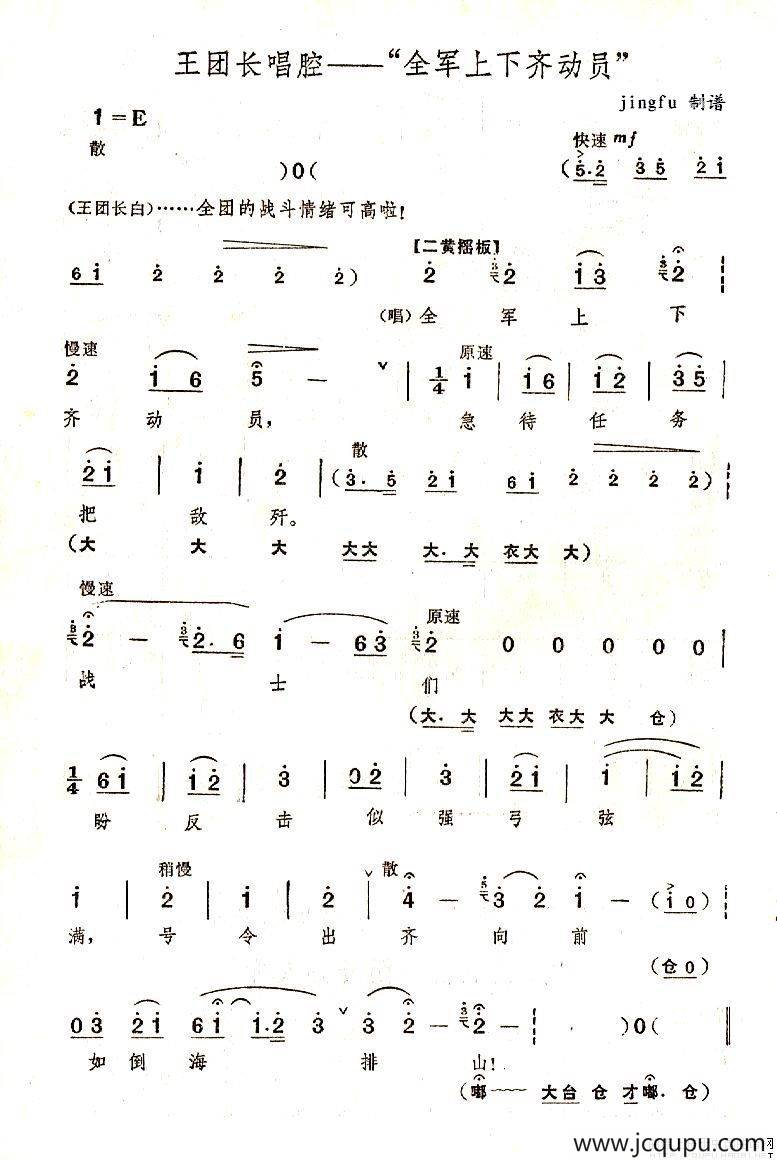 王团长唱腔——“全军上下齐动员”
jingfu 制谱
1=E
散
快速 mf
)0( (5·2 35 21
(王团长白)……全团的战斗情绪可高啦!
【二黄摇板】
61 2 2 2 2) 2 2 13 2
(唱)全 军 上 下
慢速 原速
2 16 5 — ˅ 1/4 1 | 16 | 12 | 35
齐 动 员, 急 待 任 务
散
21 | 1 | 2 | (3·5 21 61 2 2 2 2)
把 敌 歼。
(大 大 大 大大 大·大 衣大 大)
慢速 原速
2 — 2·6 1 — 63 2 0 0 0 0 0 |
战 士 们
(大·大 大大 衣大 大 仓)
1/4 61 | 12 | 3 | 02 | 3 | 21 | 1 | 12 |
盼 反 击 似 强 弓 弦
稍慢 ˅散
1 | 2 | 1 | 2 | 4 — 3 2 1 — (10)
满, 号 令 出 齐 向 前
(仓0)
03 21 61 1·2 3 ˅ 3 2 — 2 )0( ‖
如 倒 海 排 山!
(嘟~~ 大台 仓 才嘟· 仓)
www.jcqupu.com